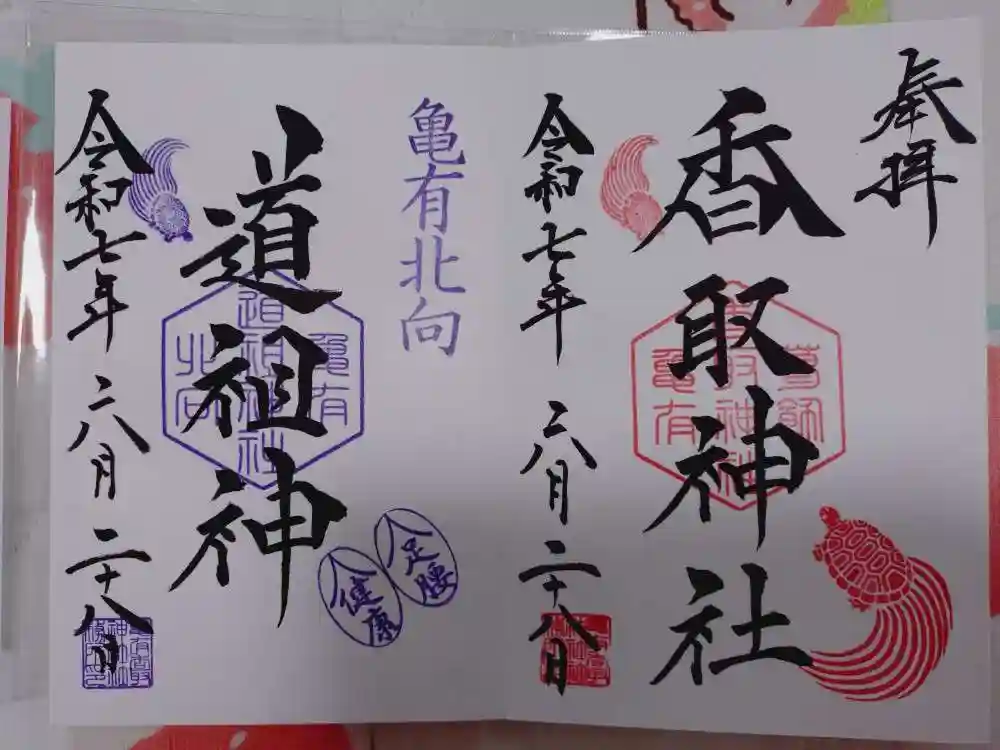 奉拝
香取神社
葛飾
香取神社
亀有
令和七年 六月 二十八日
亀有北向
道祖神
亀有
道祖神社
北向
足腰
健康
令和七年 六月 二十八日